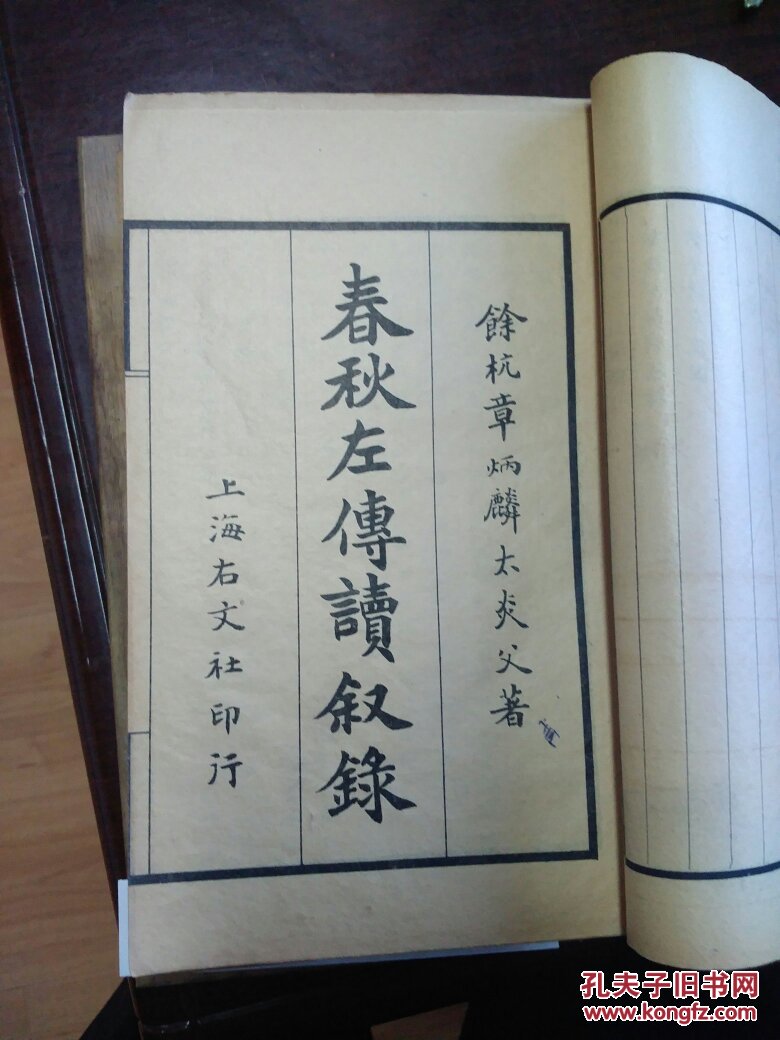 餘杭章炳麟太炎父著
春秋左傳讀叙錄
上海右文社印行
孔夫子旧书网
www.kongfz.com